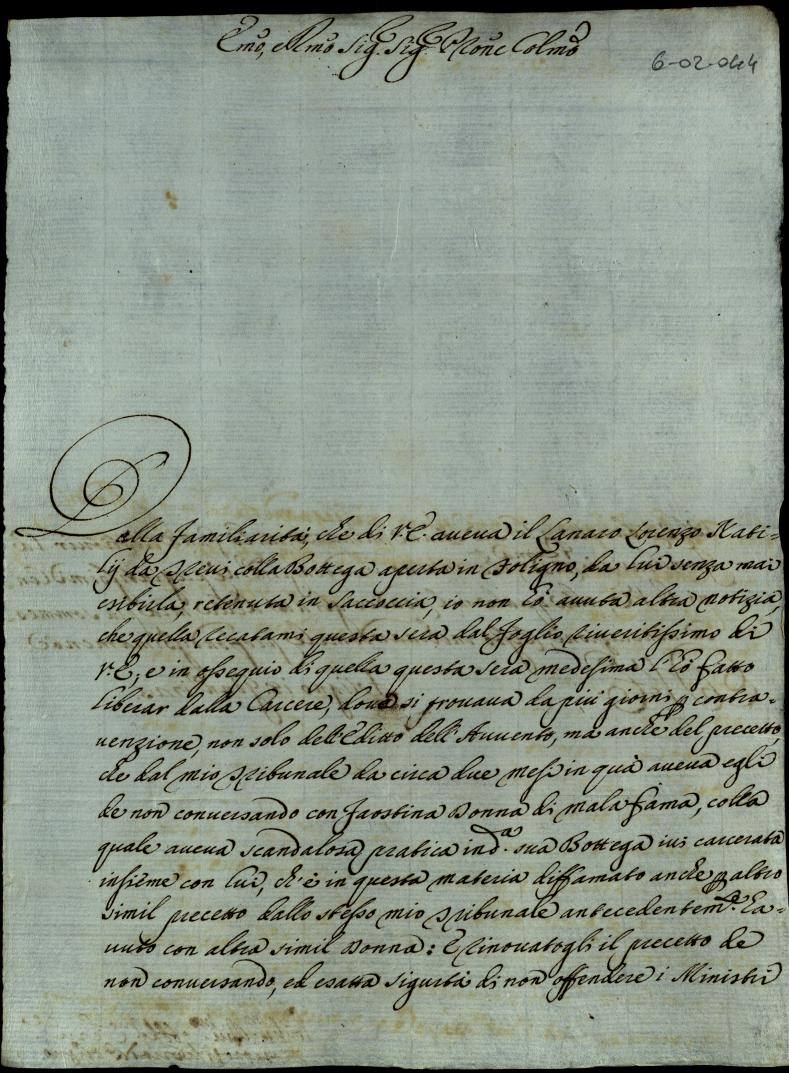 Emo, e Rmo Sig. Sig. Prone Colmo
6-02-044
Dalla familiarità, che di V.E. aveva il Lanaro Lorenzo Nati-
lij da Trevi colla Bottega aperta in Foligno, da lui senza mai
esibirla, retenuta in saccoccia, io non hò avuta altra notizia,
che quella recatami questa sera dal foglio riveritissimo di
V.E., e in ossequio di quella questa sera medesima l'hò fatto
liberar dalla Carcere, dove si trovava da più giorni p contra-
venzione, non solo dell'Editto dell'Avvento, ma anche del precetto,
che dal mio Tribunale da circa due mesi in quà aveva egli
de non conversando con Faostina Donna di mala fama, colla
quale aveva scandalosa pratica in da. sua Bottega ivi carcerata
insieme con lui, ch'è in questa materia diffamato anche p altro
simil precetto dallo stesso mio Tribunale antecedentemte. ha-
vuto con altra simil Donna: E rinovatogli il precetto de
non conversando, ed esatta sigurtà di non offendere i Ministri